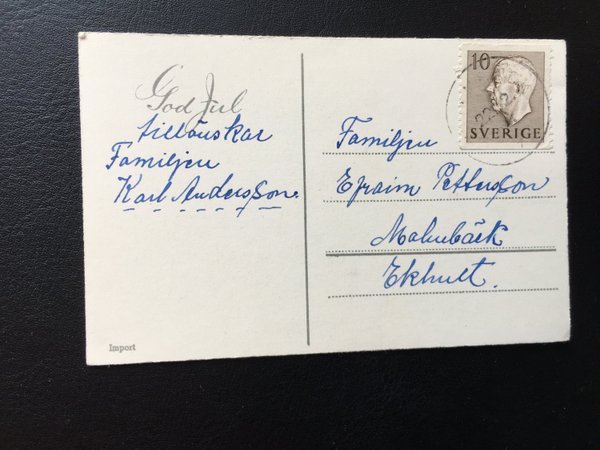 God Jul
tillönskar
Familjen
Karl Andersson.
Import
10
SVERIGE
Familjen
Efraim Pettersson
Malmbäck
Ekhult.